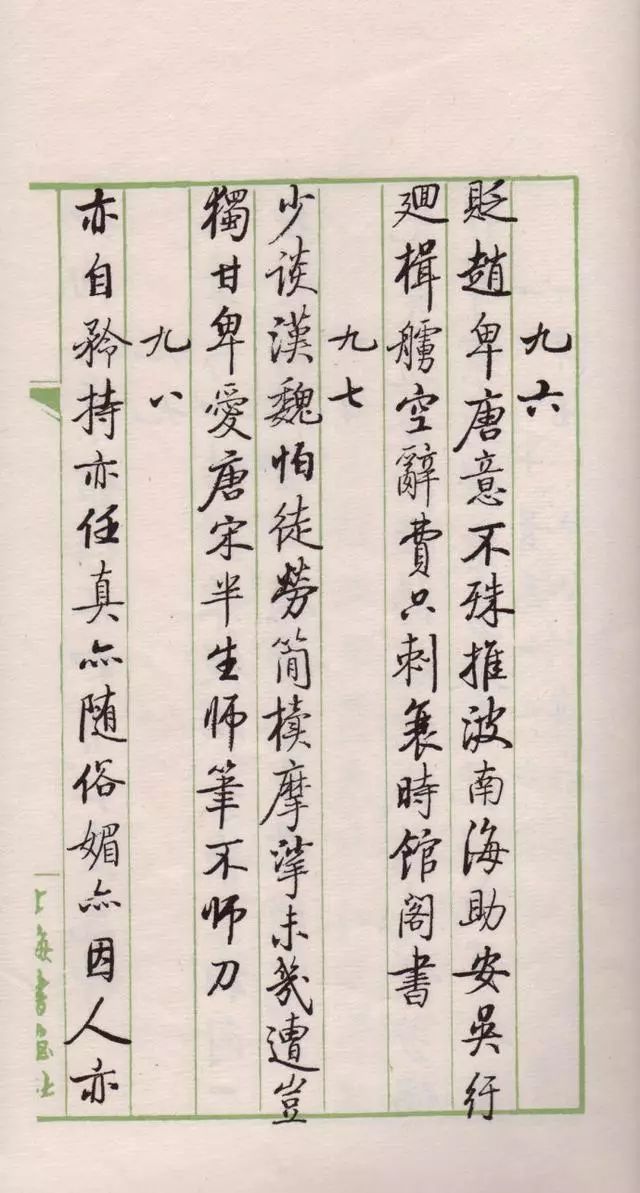 九六
貶趙卑唐意不殊推波南海助安吳紆
廻楫艣空辭費只刺衰時館阁書
九七
少谈漢魏怕徒勞简牘摩挲未幾遭豈
獨甘卑愛唐宋半生师筆不师刀
九八
亦自矜持亦任真亦随俗媚亦因人亦
上海書画社